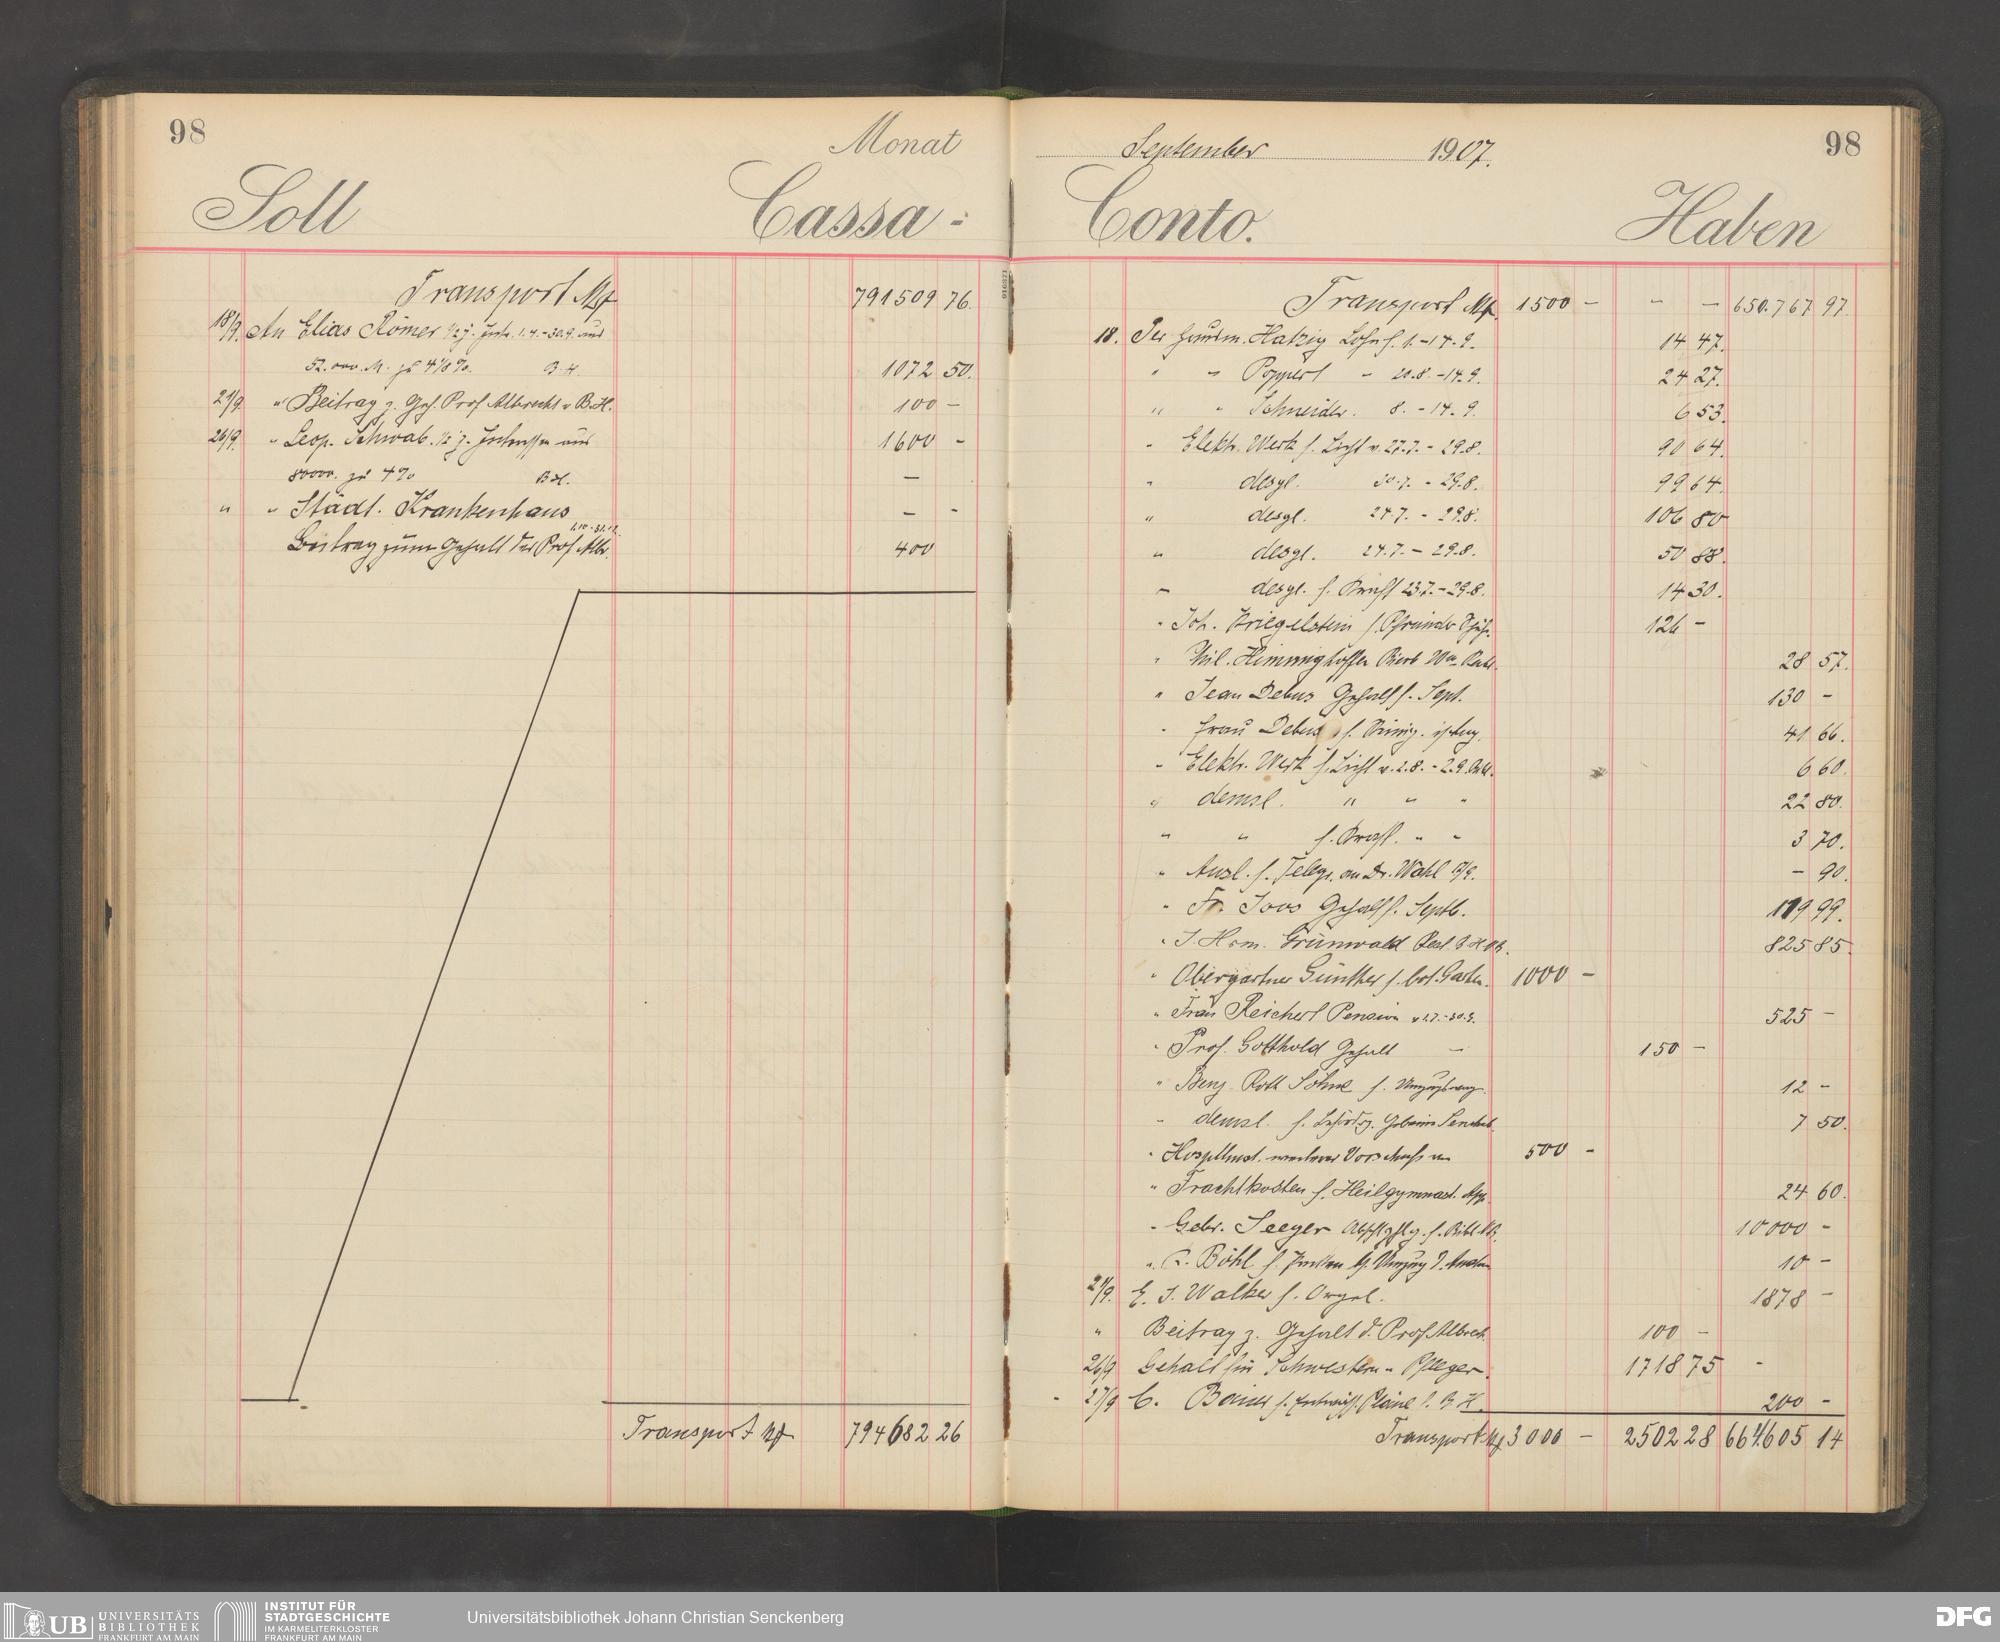 98
Monat
Soll Cassa-
Transport Mk 791509 76.
18/9. An Elias Römer 1/2 j. Intr. 1.4.-30.9. aus
52.000.M. zu 4 1/8 %. B.H. 1072 50.
21/9. " Beitrag z. Geh. Prof Albrecht v B.H. 100 —
26/9. " Leop. Schwab. 1/2 j. Interessen aus 1600 -
80000. zu 4% B.H. —
" " Städt. Krankenhaus — -
1.10-31.12.
Beitrag zum Gehalt des Prof. Albr. 400
Transport Mk 794682 26
September 1907. 98
Conto. Haben
916371
Transport Mk. 1500 — — — 650.767 97.
18. Per Hausm. Hatzig Lohn f. 1.-14.9. 14 47.
" " Poppert " 20.8.-14.9. 24 27.
" " Schneider. 8.-14.9. 6 53.
" Elektr. Werk f. Licht v. 27.7.-29.8. 90 64.
" desgl. 30.7.-29.8. 99 64.
" desgl. 24.7.-29.8. 106 80
" desgl. 24.7.-29.8. 50 88.
" desgl. f. Kraft 23.7.-29.8. 14 30.
" Joh. Kriegelstein f. 126 —
" Phil. Himmighoffen 28 57.
" Jean Debus Gehalt f. Sept. 130 —
" Frau Debus f. Reinig. 41 66.
" Elektr. Werk f. Licht v. 2.8.-2.9. Bibl. 6 60.
" demsl. " " " 22 80.
" " f. Kraft. " " 3 70.
" Ausl. f. Telegr. an Dr. Wahl — 90.
" Fr. Joos Gehalt f. Septb. 119 99.
" J. Herm. Grünwald 825 85.
" Obergärtner Günther f. bot. Garten. 1000 —
" Frau Reichert Pension v 1.7.-30.9. 525 —
" Prof. Gotthold Gehalt — 150 —
" Benj. Roth Söhne f. 12 —
" demsl. f. 7 50.
" Hosp. Vorschuss 500 -
" Frachtkosten f. Heilgymnast. App. 24 60.
" Gebr. Seeger Abschlgzhlg. f. Bibl. 10 000 -
" C. Böhl f. 10 —
21/9. E. J. Walker f. Orgel. 1878 —
" Beitrag z. Gehalt d. Prof. Albrecht. 100 —
26/9 Gehalt für Schwestern u Pfleger. 1718 75 -
27/9 C. f. Entwürf. Pläne f. B.H. 200 —
Transport Mk 3000 — 2502 28 664605 14
UB UNIVERSITÄTS
BIBLIOTHEK
FRANKFURT AM MAIN
INSTITUT FÜR
STADTGESCHICHTE
IM KARMELITERKLOSTER
FRANKFURT AM MAIN
Universitätsbibliothek Johann Christian Senckenberg
DFG